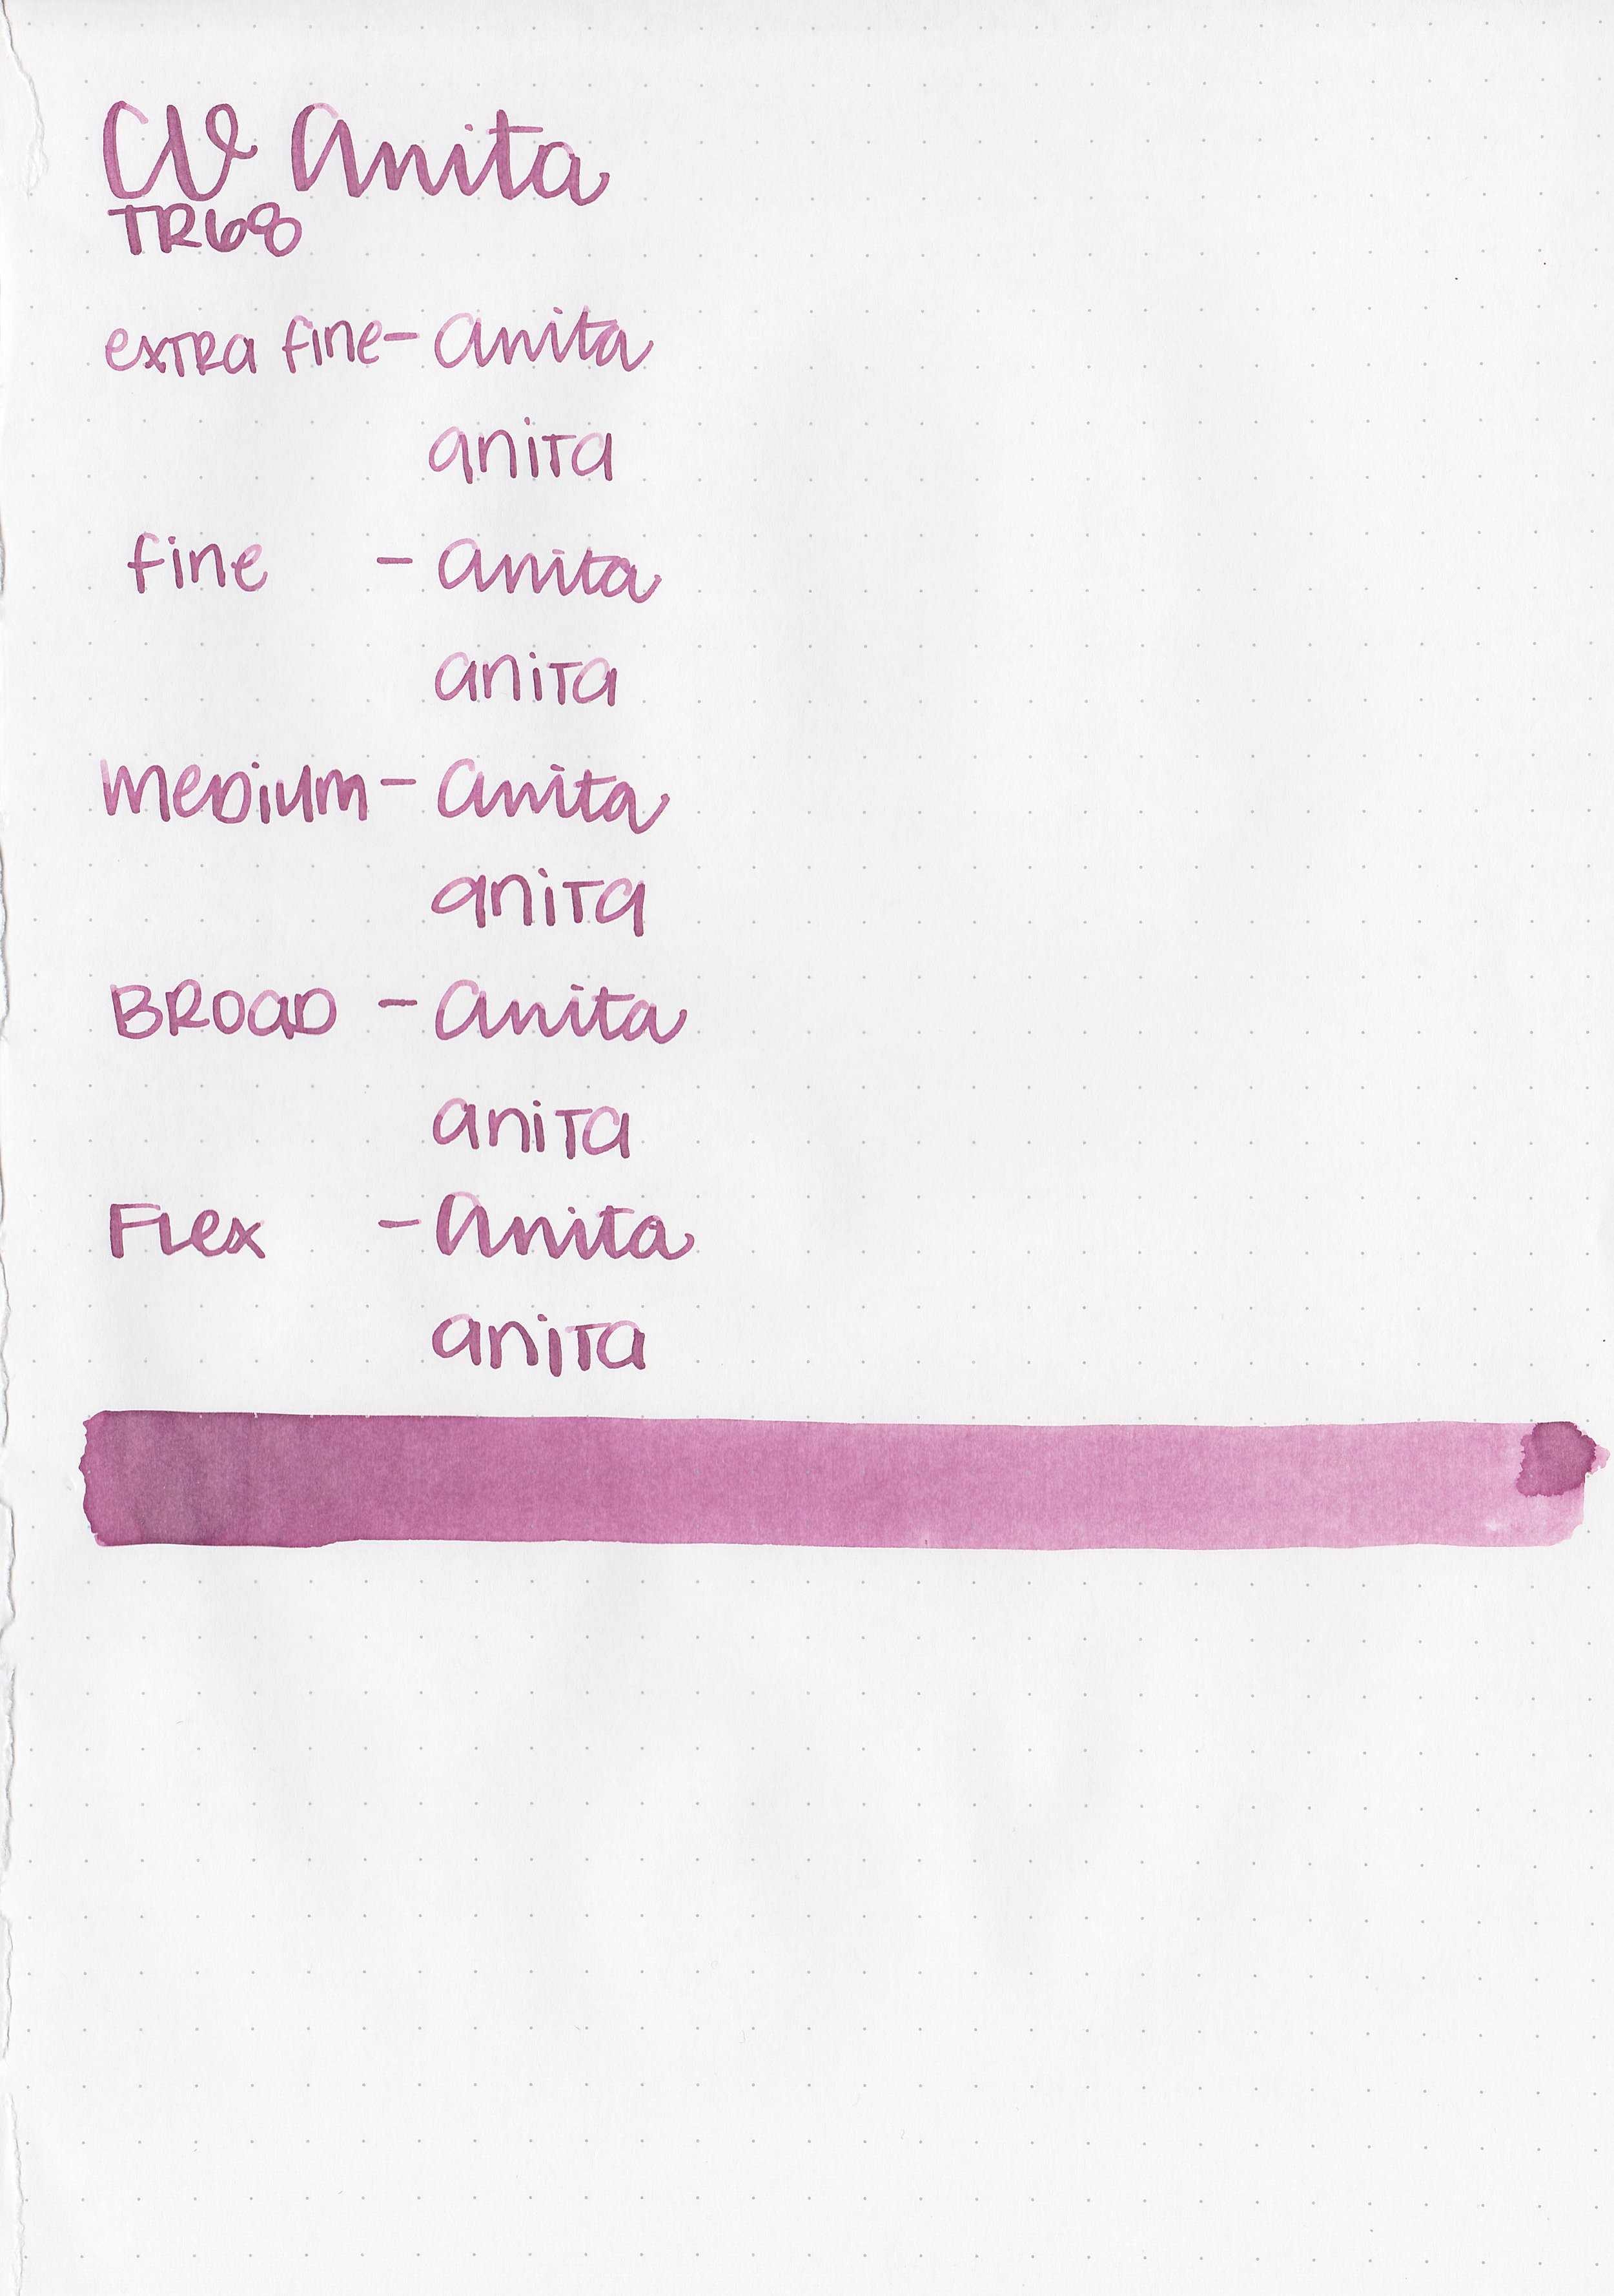 CV Anita
TR68
extra fine - anita
anita
fine - anita
anita
medium - anita
anita
BROAD - anita
anita
Flex - anita
anita